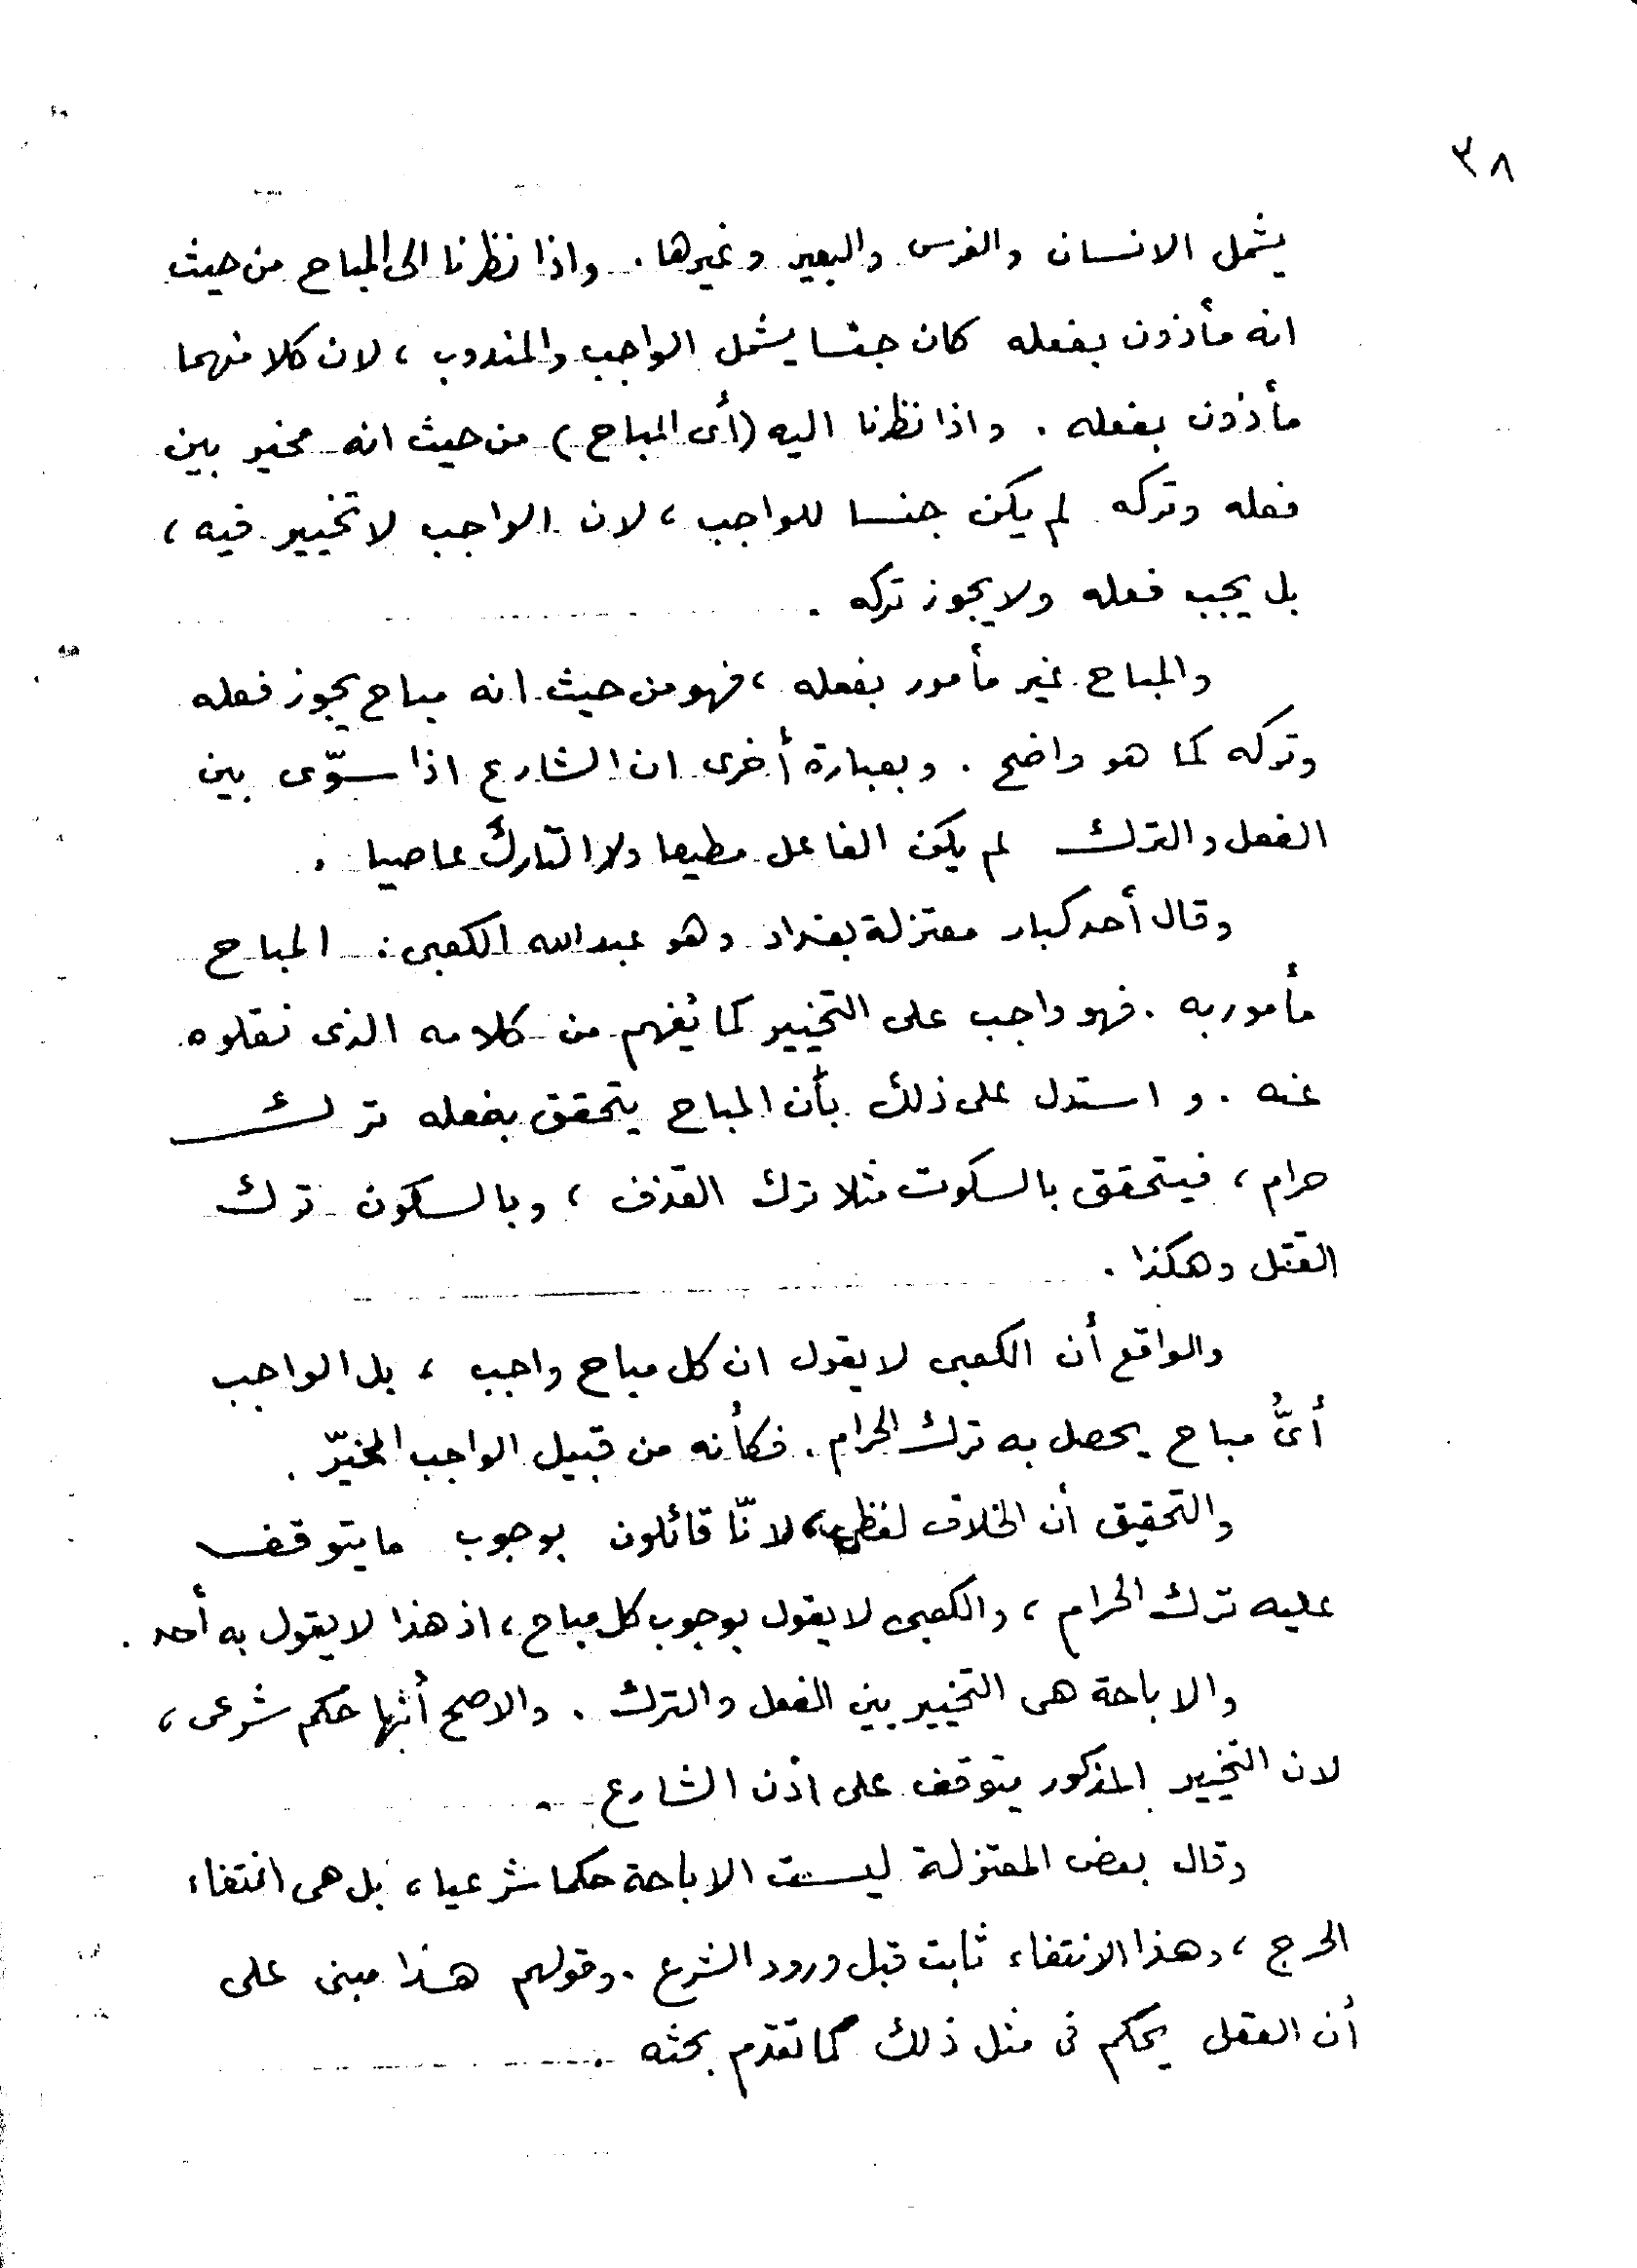 ٣٨
يشمل الانسان والفرس والبعير وغيرها . واذا نظرنا الى المباح من حيث
انه مأذون بفعله كان جنسا يشمل الواجب والمندوب ، لان كلا منهما
مأذون بفعله . واذا نظرنا اليه (أى المباح) من حيث انه مخير بين
فعله وتركه لم يكن جنسا للواجب ، لان الواجب لا تخيير فيه ،
بل يجب فعله ولا يجوز تركه .
والمباح غير مأمور بفعله ، فهو من حيث انه مباح يجوز فعله
وتركه كما هو واضح . وبعبارة أخرى ان الشارع اذا سوّى بين
الفعل والترك لم يكن الفاعل مطيعا ولا التارك عاصيا .
وقال أحد كبار معتزلة بغداد وهو عبد الله الكعبى : المباح
مأمور به . فهو واجب على التخيير كما يُفهم من كلامه الذى نقلوه
عنه . و استدل على ذلك بأن المباح يتحقق بفعله ترك
حرام ، فيتحقق بالسكوت مثلا ترك القذف ، وبالسكون ترك
القتل وهكذا .
والواقع أن الكعبى لا يقول ان كل مباح واجب ، بل الواجب
أىُّ مباح يحصل به ترك الحرام . فكأنه من قبيل الواجب المخيّر .
والتحقيق أن الخلاف لفظى ، لانّا قائلون بوجوب ما يتوقف
عليه ترك الحرام ، والكعبى لا يقول بوجوب كل مباح ، اذ هذا لا يقول به أحد .
والاباحة هى التخيير بين الفعل والترك . والاصح أنها حكم شرعى ،
لان التخيير المذكور يتوقف على اذن الشارع .
وقال بعض المعتزلة ليست الاباحة حكما شرعيا ، بل هى انتفاء
الحرج ، وهذا الانتفاء ثابت قبل ورود الشرع . وقولهم هذا مبنى على
أن العقل يحكم فى مثل ذلك كما تقدم بحثه .